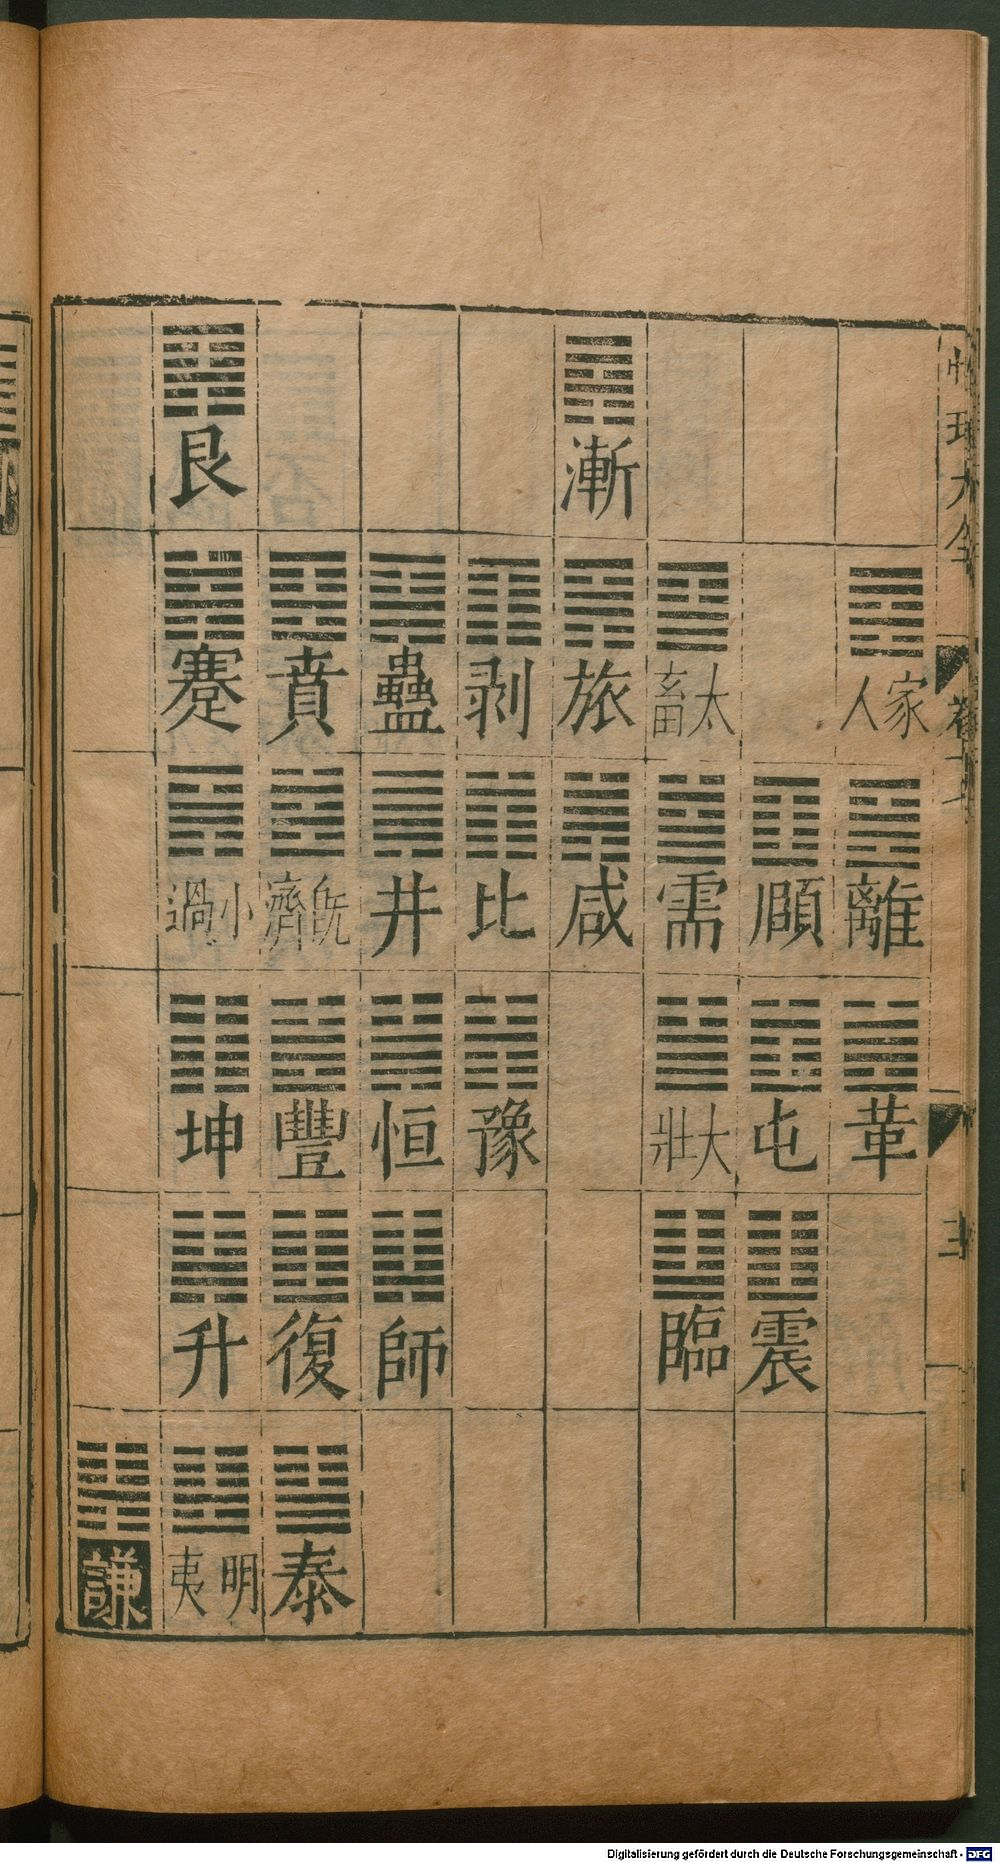 性理大全
卷
家人
離
革
頤
屯
震
太畜
需
大壯
臨
漸
旅
咸
剥
比
豫
蠱
井
恒
師
賁
既濟
豐
復
泰
艮
蹇
小過
坤
升
明夷
謙
Digitalisierung gefördert durch die Deutsche Forschungsgemeinschaft - DFG